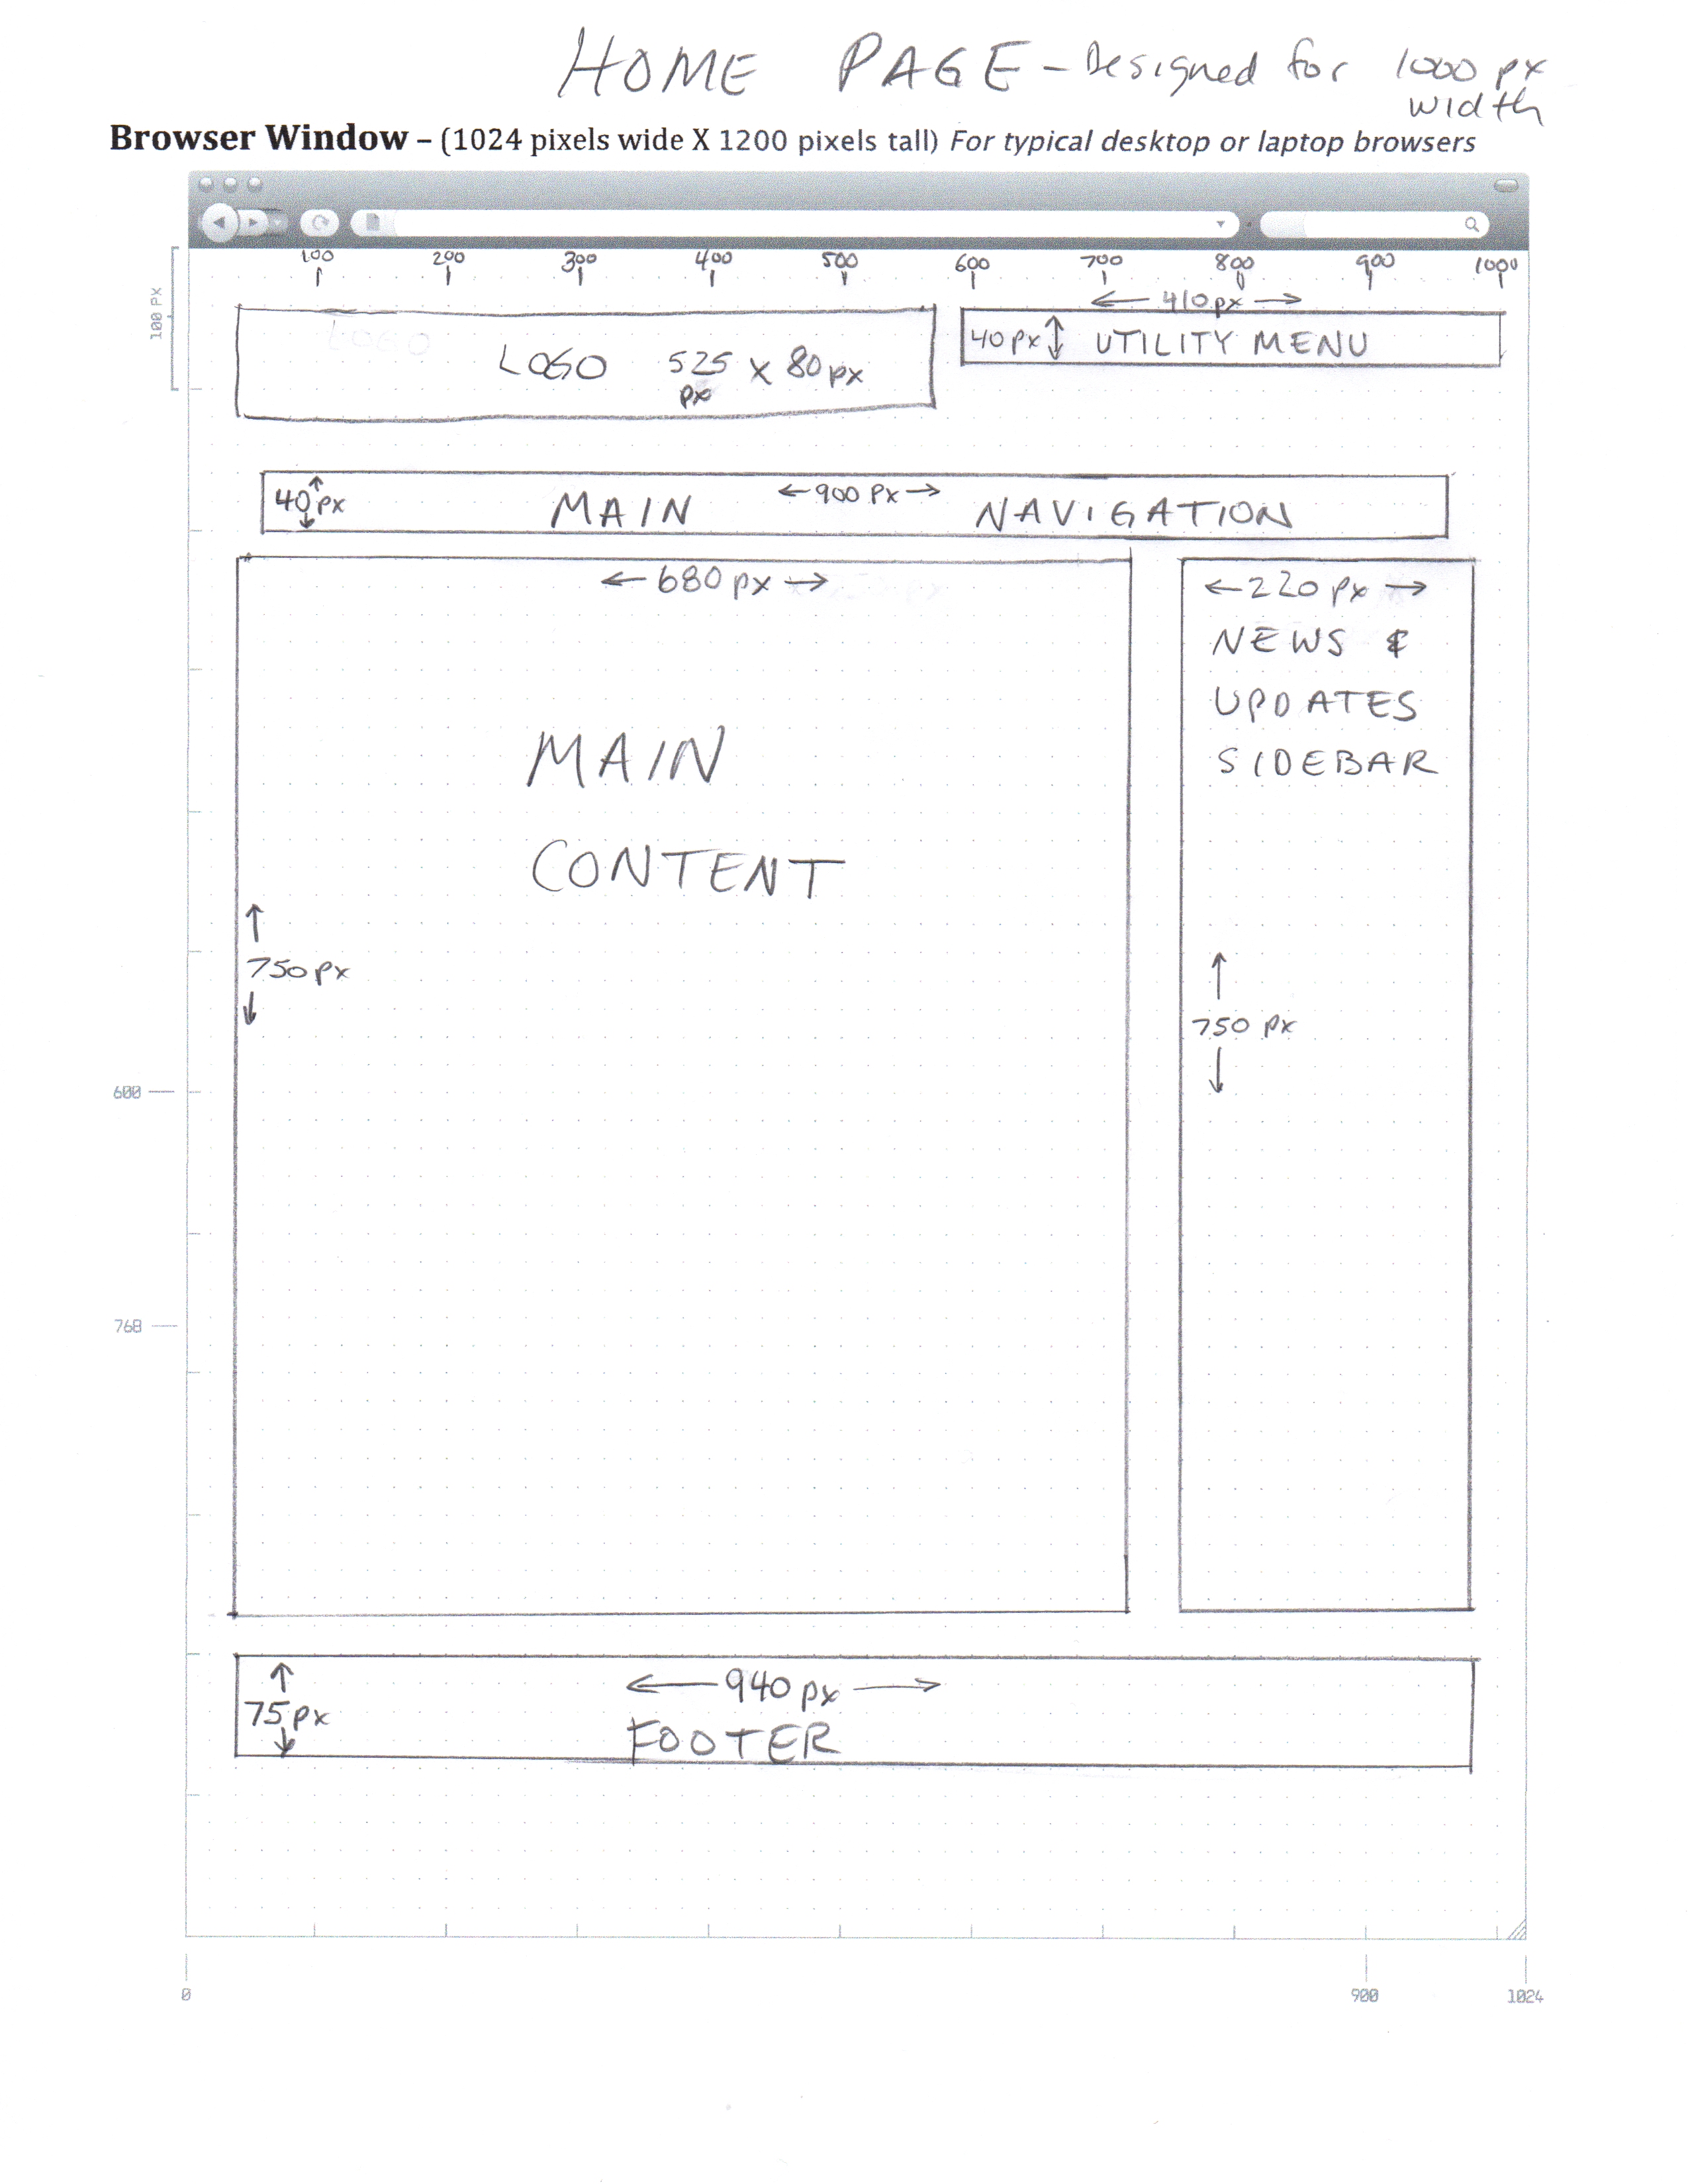 HOME PAGE - Designed for 1000 px
width
Browser Window – (1024 pixels wide X 1200 pixels tall) For typical desktop or laptop browsers
100 200 300 400 500 600 700 800 900 1000
100 PX
410px
LOGO
LOGO 525 px X 80px
40px UTILITY MENU
40px
900 px
MAIN NAVIGATION
680 px
220 px
NEWS &
UPDATES
SIDEBAR
MAIN
CONTENT
750px
750 px
600
768
940 px
75 px
FOOTER
0 900 1024